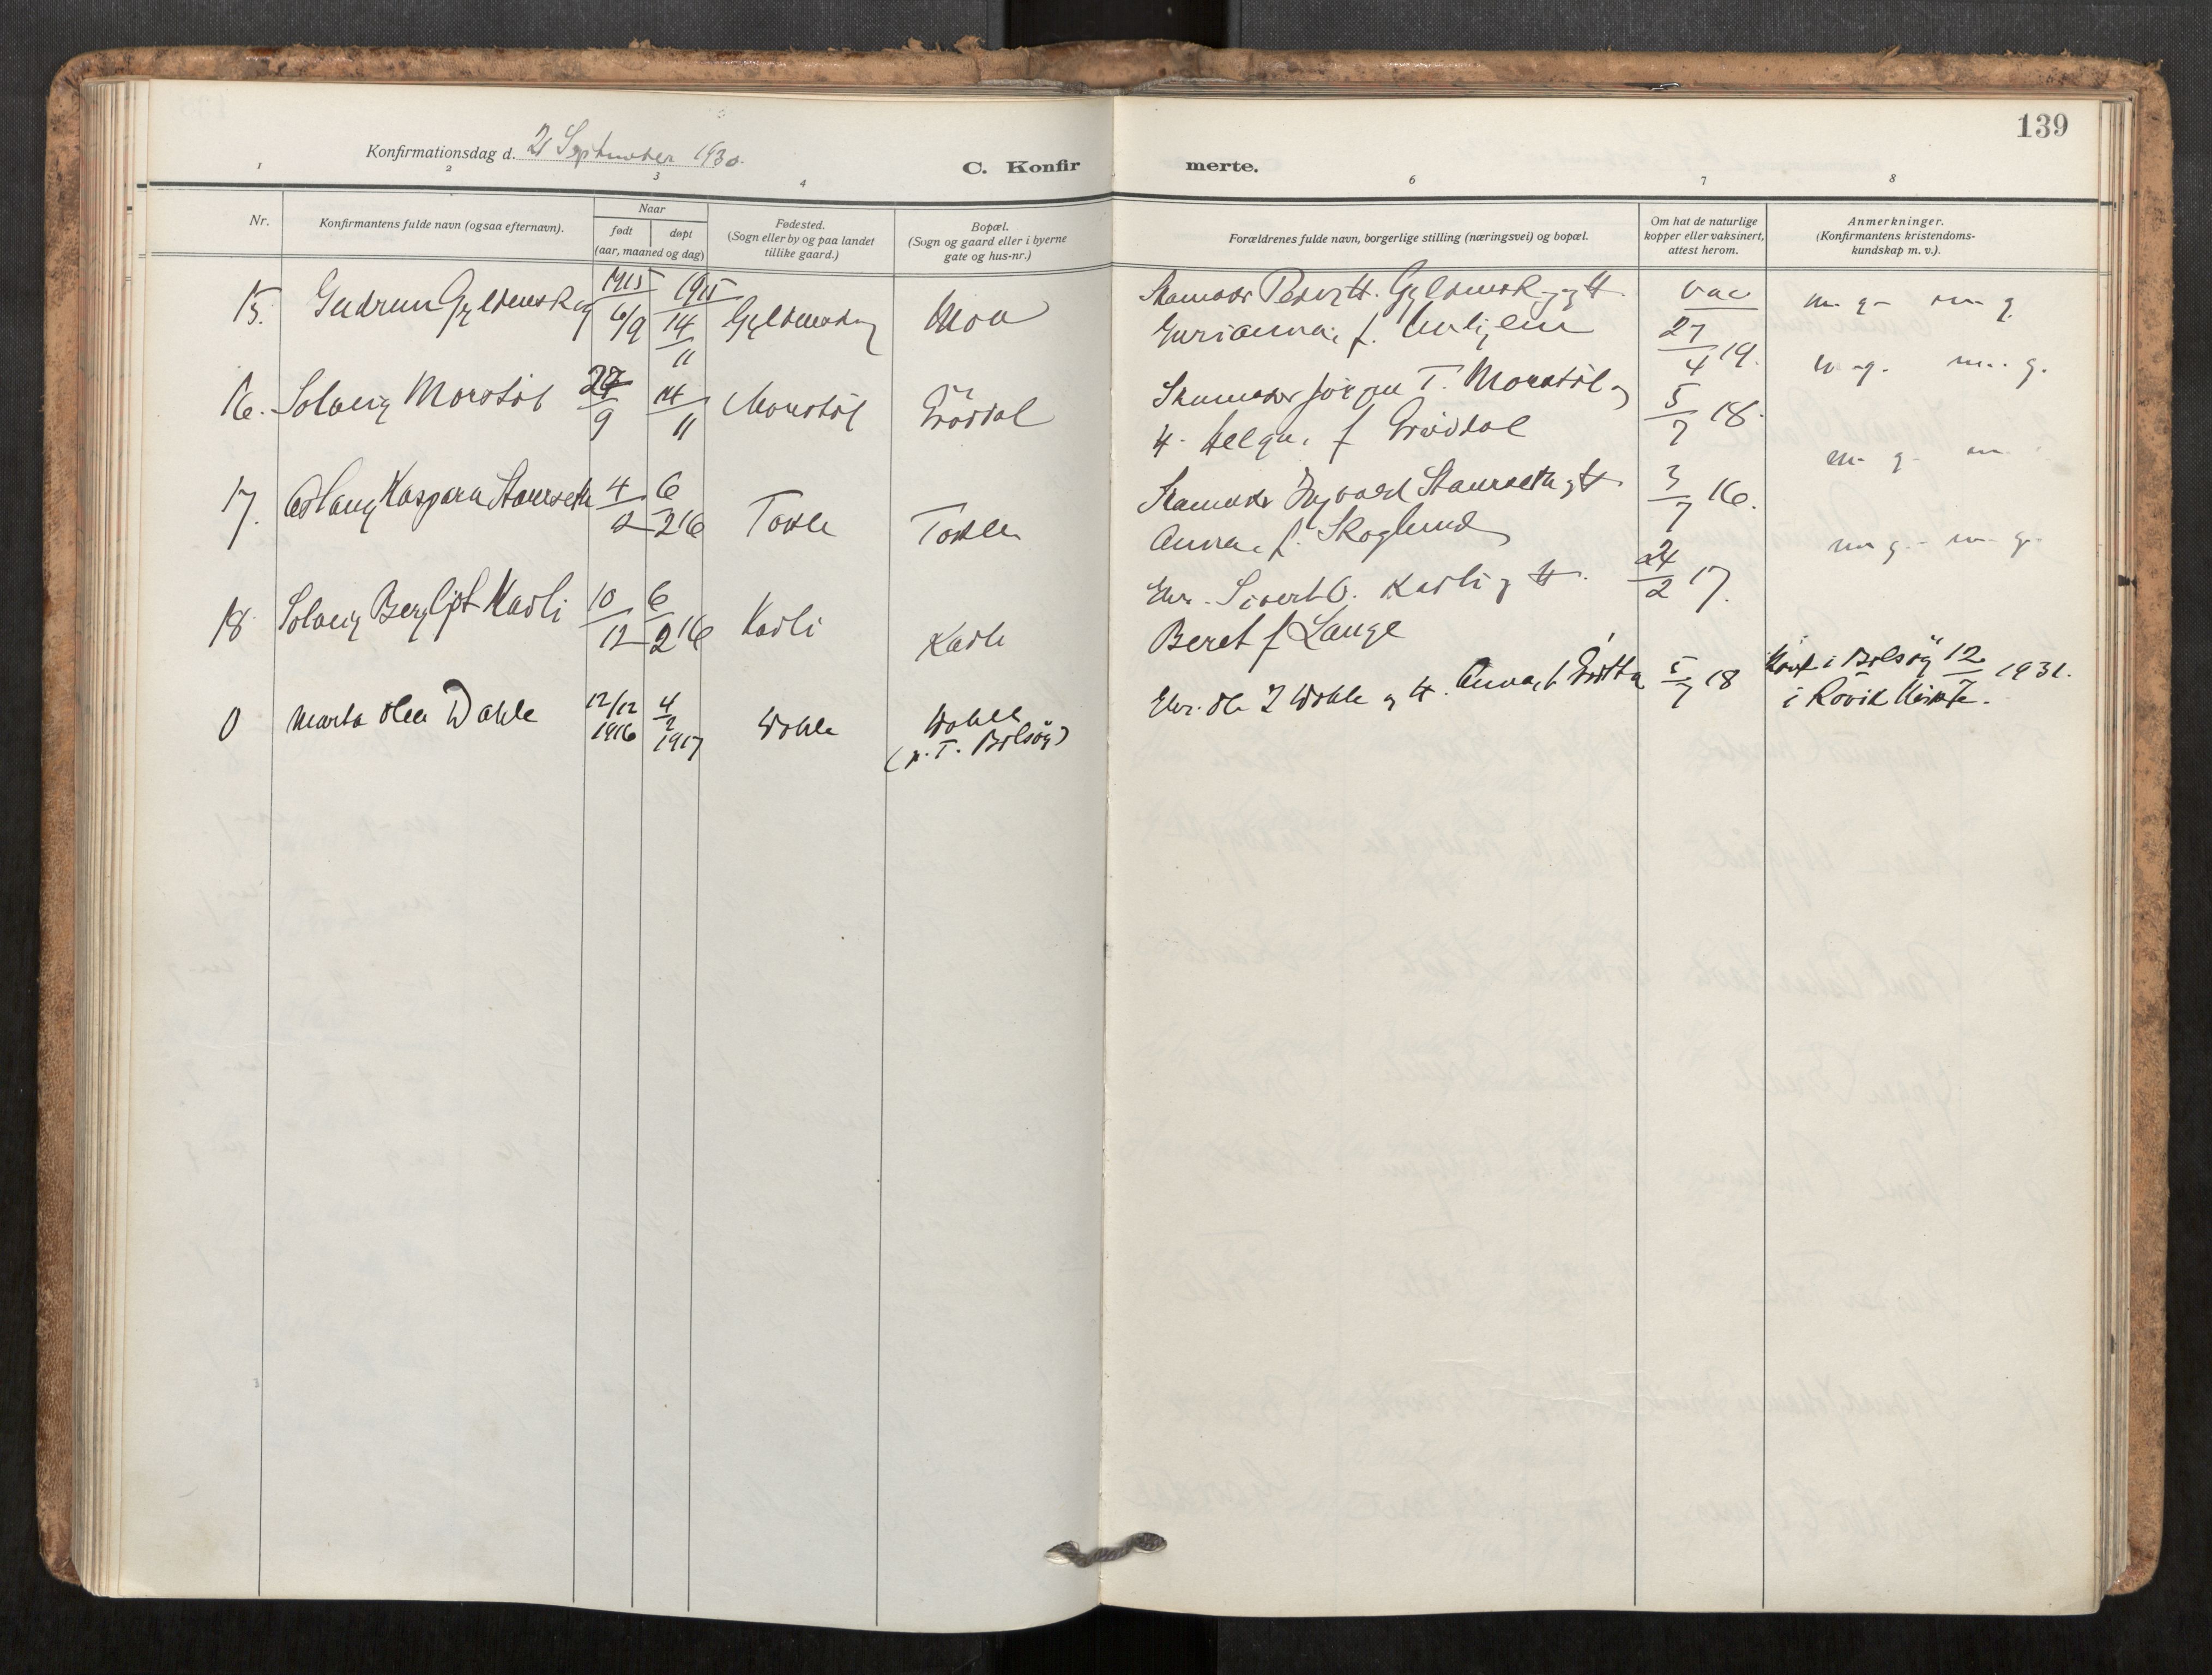 139
Konfirmationsdag d. 21 September 1930.
C. Konfirmerte.
1 2 3 4 6 7 8
Nr.
Konfirmantens fulde navn (ogsaa efternavn).
Naar
født døpt
(aar, maaned og dag)
Fødested.
(Sogn eller by og paa landet
tillike gaard.)
Bopæl.
(Sogn og gaard eller i byerne
gate og hus-nr.)
Forældrenes fulde navn, borgerlige stilling (næringsvei) og bopæl.
Om hat de naturlige
kopper eller vaksinert,
attest herom.
Anmerkninger.
(Konfirmantens kristendoms-
kundskap m. v.).
15. Gudrun Gyldenskog 1915 6/9 1915 14/11 Gyldenskog Moa
Pedr H. Gyldenskog og H.
Gurianna, f.
vac 27/4 19.
m. g. m. g.
16. Solveig Monstøl 9 14/11 Monstøl Grøvdal
Jørgen T. Monstøl og
H. Helga, f Grøvdal
5/7 18.
m. g. m. g.
17. Aslaug Kaspara Staurseth 4/2 6/2 16 Tokle Tokle
Ingvald Staurseth og H.
Anna, f. Skoglund
3/7 16.
m. g. m.
18. Solveig Bergljot Kavli 10/12 6/2 16 Kavli Kavli
Sivert O. Kavli og H.
Beret f Lange
24/2 17.
m g. m. g.
0 Marta Olea Wahle 12/12 1916 4/2 1917 Wahle Wahle
(p. T. Bolsøy)
Ole I Wahle og H. Anna, f
5/7 18
Konf i Bolsøy 12/7 1931.
i Røvik Kirke.